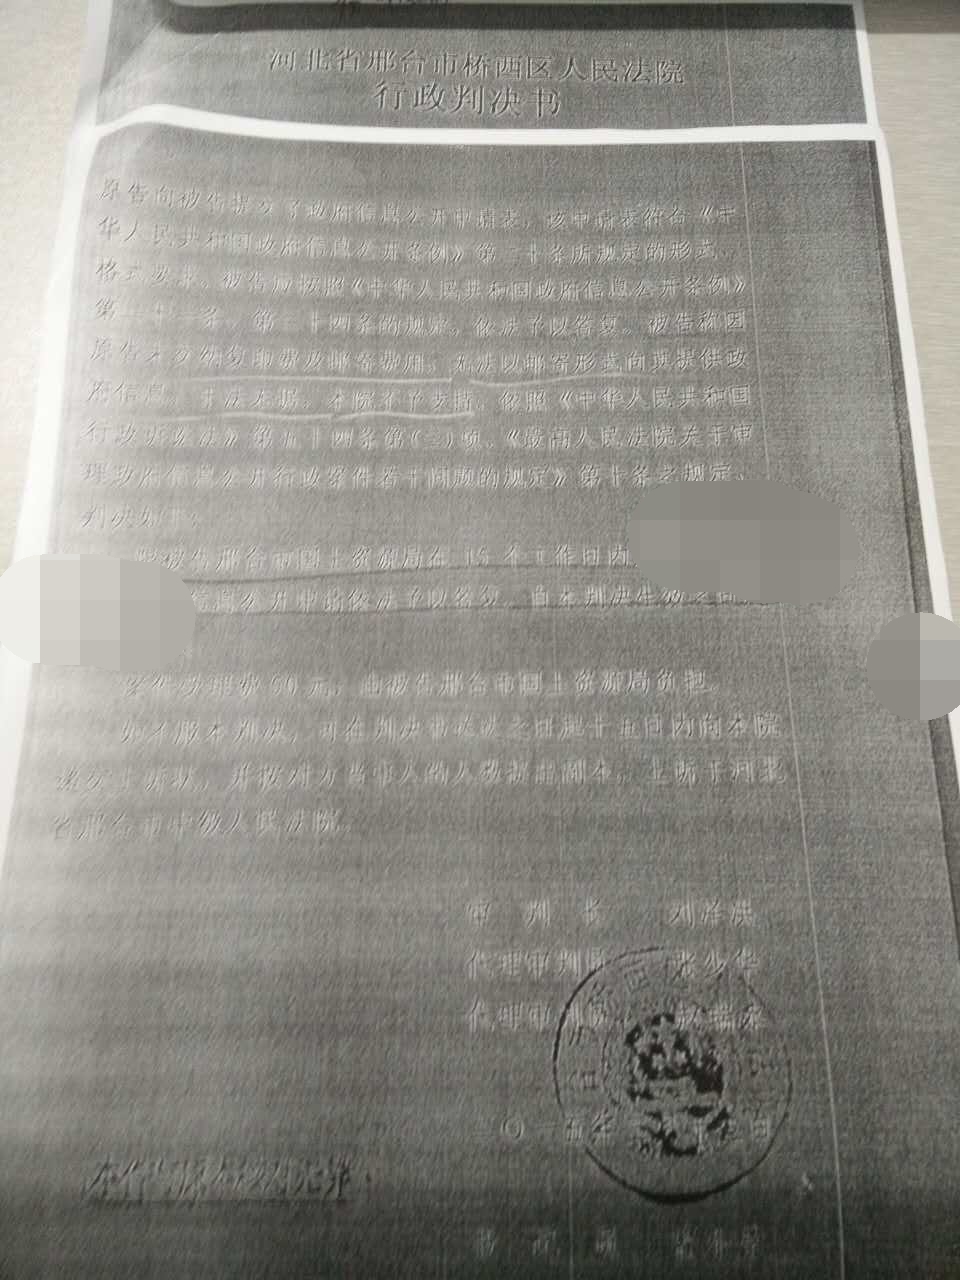 河北省邢台市桥西区人民法院
行政判决书
原告向被告提交了政府信息公开申请表，该申请表符合《中
华人民共和国政府信息公开条例》第二十条所规定的形式、
格式要求，被告应按照《中华人民共和国政府信息公开条例》
第二十一条、第二十四条的规定，依法予以答复。被告称因
原告未交纳复印费及邮寄费用，无法以邮寄形式向其提供政
府信息，于法无据，本院不予支持。依照《中华人民共和国
行政诉讼法》第五十四条第（三）项、《最高人民法院关于审
理政府信息公开行政案件若干问题的规定》第十条之规定，
判决如下：
限被告邢台市国土资源局在15个工作日内
信息公开申请依法予以答复，自本判决生效之日
案件受理费50元，由被告邢台市国土资源局负担。
如不服本判决，可在判决书送达之日起十五日内向本院
递交上诉状，并按对方当事人的人数提出副本，上诉于河北
省邢台市中级人民法院。
审 判 长
代理审判
代理审
二〇一五年
本件与原本核对无异
书 记 员